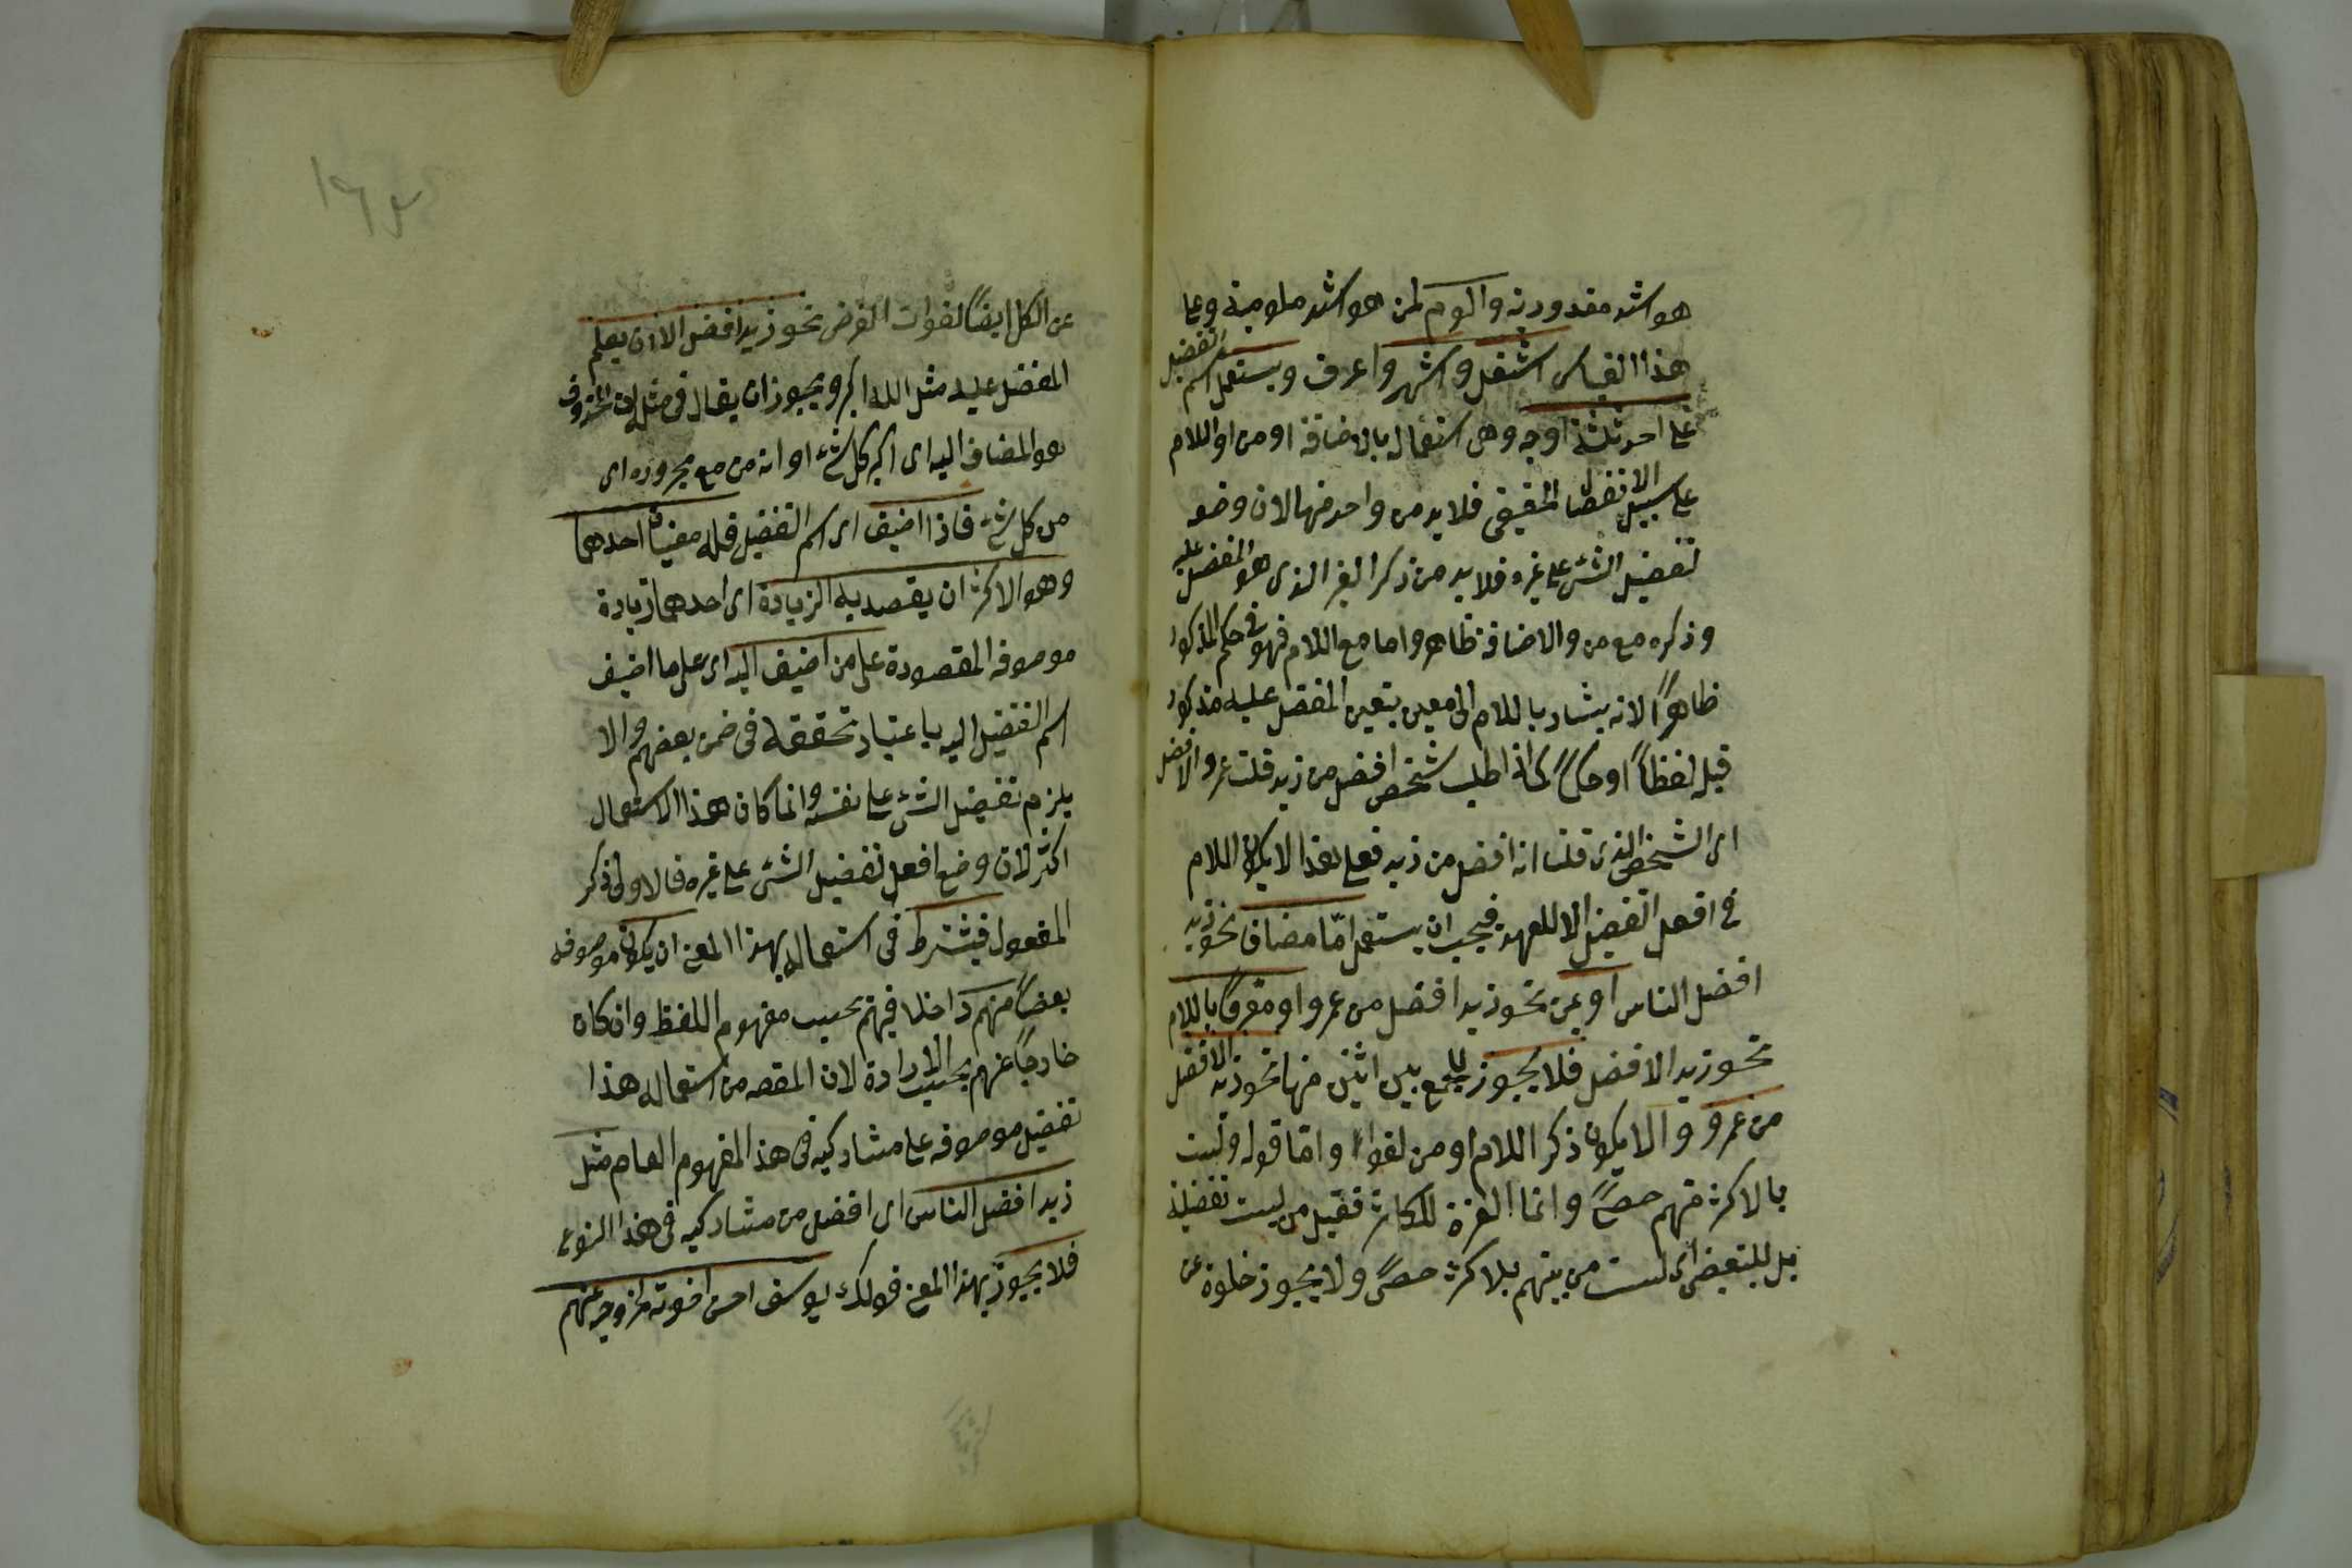 هو اشد معذورية والوم لمن هو اشد ملومية وعلى
هذا القياس اشغل واشهر واعرف ويستعمل اسم التفضيل
على احد ثلثة اوجه وهى استعماله بالاضافة او من او اللام
على سبيل الانفصال الحقيقى فلا بد من واحد منها لان وضعه
لتفضيل الشئ على غيره فلا بد من ذكر الغير الذى هو المفضل عليه
وذكره مع من والاضافة ظاهر واما مع اللام فهو فى حكم المذكور
ظاهراً لانه يشار باللام الى معين بتعين المفضل عليه مذكور
قبله لفظاً او حكماً كما اذا طلب شخص افضل من زيد قلت عمرو الافضل
اى الشخص الذى قلنا انه افضل من زيد فعلى هذا لا يكون اللام
فى افعل التفضيل الا للعهد فيجب ان يستعمل امّا مضاف نحو زيد
افضل الناس او بمن نحو زيد افضل من عمرو او معرفاً باللام
نحو زيد الافضل فلا يجوز الجمع بين اثنين منها نحو زيد الافضل
من عمرو والا يكون ذكر اللام او من لغواً وامّا قوله ولست
بالاكثر منهم حصىً وانما العزة للكاثر فقيل من ليست تفضيلة
بل للتبعيض اى لست من بينهم بالاكثر حصىً ولا يجوز خلوه عن
عن الكل ايضاً لفوات الغرض نحو زيد افضل الا ان يعلم
المفضل عليه مثل الله اكبر ويجوز ان يقال فى مثله ان المحذوف
هو المضاف اليه اى اكبر كل شئ او انه من مع مجروره اى
من كل شئ فاذا اضيف اى اسم التفضيل فله معنيان احدهما
وهو الاكثر ان يقصد به الزيادة اى احدهما زيادة
موصوفه المقصودة على من اضيف اليه اى على ما اضيف
اسم التفضيل اليه باعتبار تحققه فى ضمن بعضهم والا
يلزم تفضيل الشئ على نفسه وانما كان هذا الاستعمال
اكثر لان وضع افعل لتفضيل الشئ على غيره فالاولى ذكر
المفعول فيشترط فى استعماله بهذا المعنى ان يكون موصوفه
بعضاً منهم داخلا فيهم بحسب مفهوم اللفظ وان كان
خارجاً عنهم بحسب الارادة لان المقصد من استعماله هذا
تفضيل موصوفه على مشاركيه فى هذا المفهوم العام مثل
زيد افضل الناس اى افضل من مشاركيه فى هذا النوع
فلا يجوز بهذا المعنى قولك يوسف احسن اخوته لخروجه عنهم